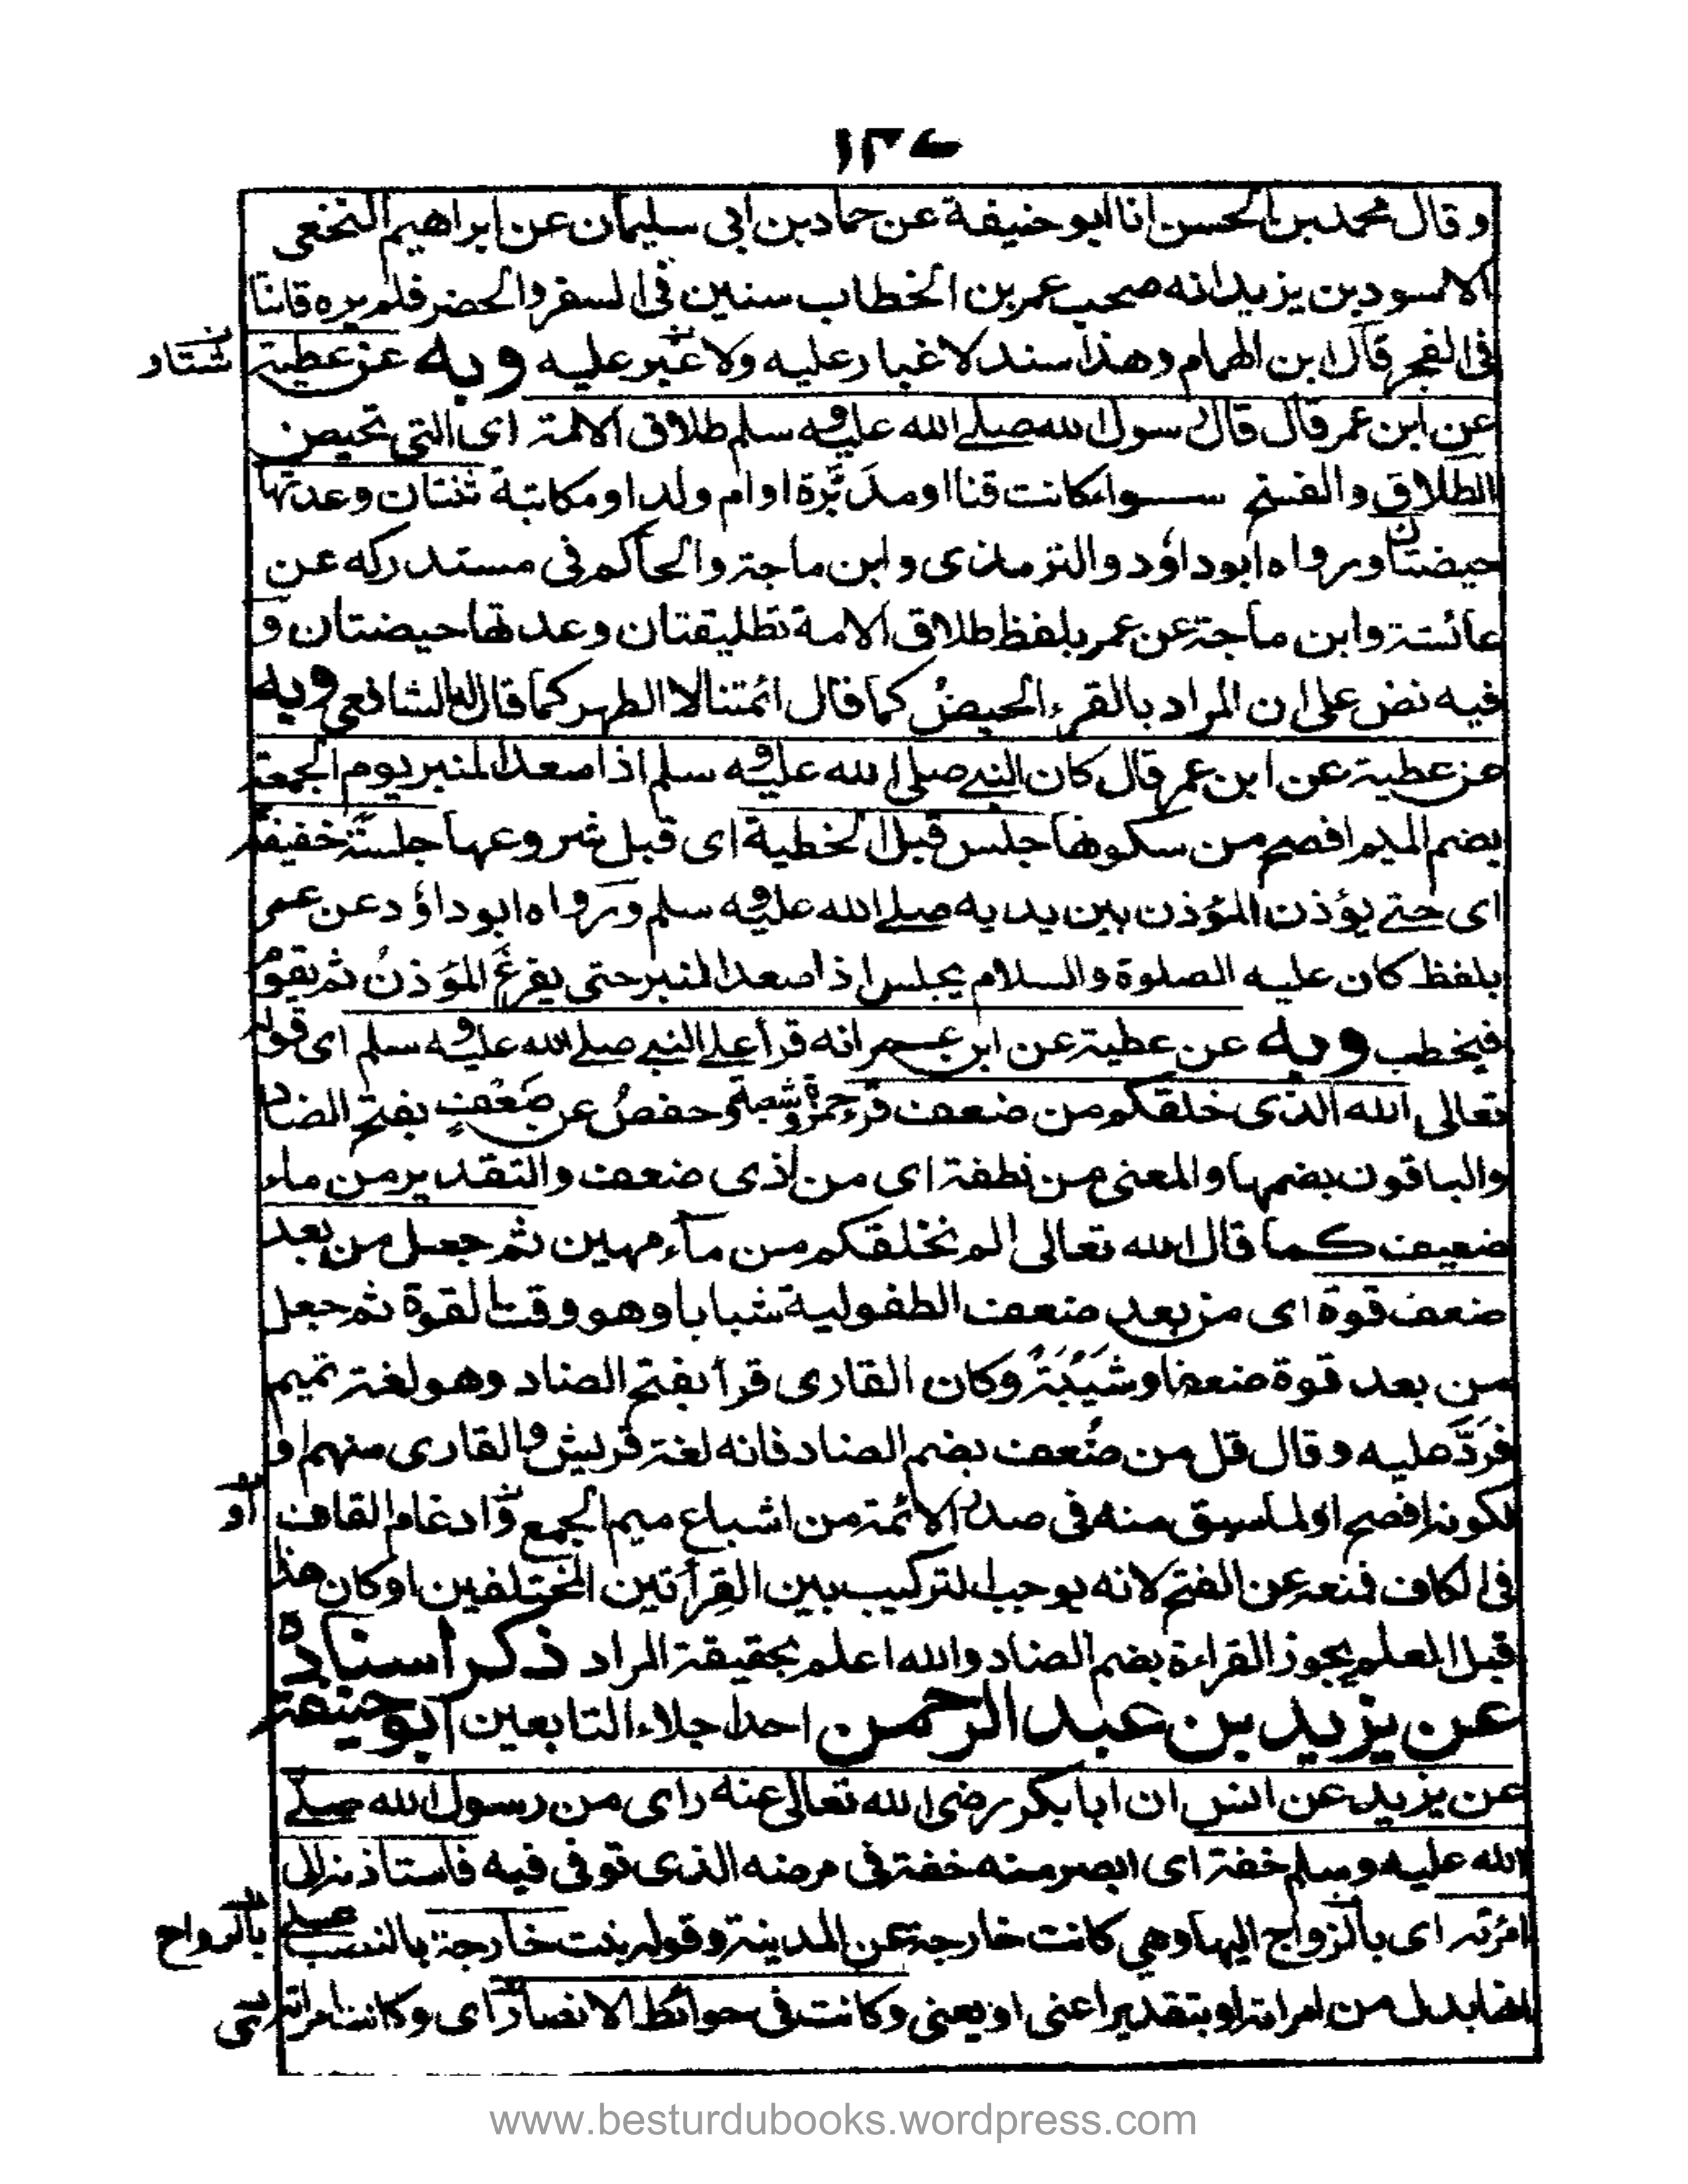 ١٣٧
وقال محمد بن الحسن انا ابو حنيفة عن حماد بن ابي سليمان عن ابراهيم النخعي
الاسود بن يزيد انه صحب عمر بن الخطاب سنين في السفر والحضر فلم يره قانتا
في الفجر قال ابن الهمام وهذا سند لا غبار عليه ولا غبر عليه وبه عن عطية
عن ابن عمر قال قال رسول الله صلے الله عليه و سلم طلاق الامة اى التي تحيض
الطلاق والفسخ سواء كانت قنا او مدَبَّرة او ام ولد او مكاتبة ثنتان وعدتها
حيضتان ورواه ابوداؤد والترمذى وابن ماجة والحاكم فى مستدركه عن
عائشة وابن ماجة عن عمر بلفظ طلاق الامة تطليقتان وعدتها حيضتان و
فيه نص على ان المراد بالقرء الحيضُ كما قال ائمتنا لا الطهر كما قال الشافعى وبه
عن عطية عن ابن عمر قال كان النبے صلى الله عليه و سلم اذا صعد المنبر يوم الجمعة
بضم الميم افصح من سكونها جلس قبل الخطبة اى قبل شروعها جلسَةً خفيفة
اى حتے يؤذن المؤذن بين يديه صلے الله عليه و سلم ورواه ابوداؤد عن عمر
بلفظ كان عليه الصلوة والسلام يجلس اذا صعد المنبر حتى يفرغَ المؤذنُ ثم يقومُ
فيخطب وبه عن عطية عن ابن عمر انه قرأ علے النبے صلے الله عليه و سلم اى قوله
تعالى الله الذى خلقكم من ضعف قرء حمزة وشعبة وحفصُ عن ضَعْفٍ بفتح الضاد
والباقون بضمها والمعنى من نطفة اى من ذى ضعف والتقدير من ماء
ضعيف كما قال الله تعالى الم نخلقكم من ماء مهين ثم جعل من بعد
ضعف قوة اى من بعد ضعف الطفولية شبابا وهو وقت القوة ثم جعل
من بعد قوة ضعفا وشَيْبَةً وكان القارى قرأ بفتح الضاد وهو لغة تميم
فَرَدَّ عليه وقال قل من ضُعف بضم الضاد فانه لغة قريش والقارى منهم او
لكونه افصح او لما سبق منه فى صدر الائمة من اشباع ميم الجمع و ادغام القاف
فى الكاف فمنعه عن الفتح لانه يوجب التركيب بين القرأتين المختلفين او كان هذا
قبل العلم بجوز القراءة بضم الضاد والله اعلم بحقيقة المراد ذكر اسناده
عن يزيد بن عبد الرحمن احد اجلاء التابعين ابو حنيفة
عن يزيد عن انس ان ابا بكر رضى الله تعالى عنه راى من رسول الله صلے
الله عليه وسلم خفة اى ابصر منه خفة فى مرضه الذى توفى فيه فاستاذنه الى
امرئته اى بالزواج اليها وهي كانت خارجة عن المدينة وقوله بنت خارجة بالنصب
انها بدل من امراته او بتقدير اعنى او يعنى وكانت فى حوائط الانصار اى وكانت امراته
بالرواح
او
www.besturdubooks.wordpress.com